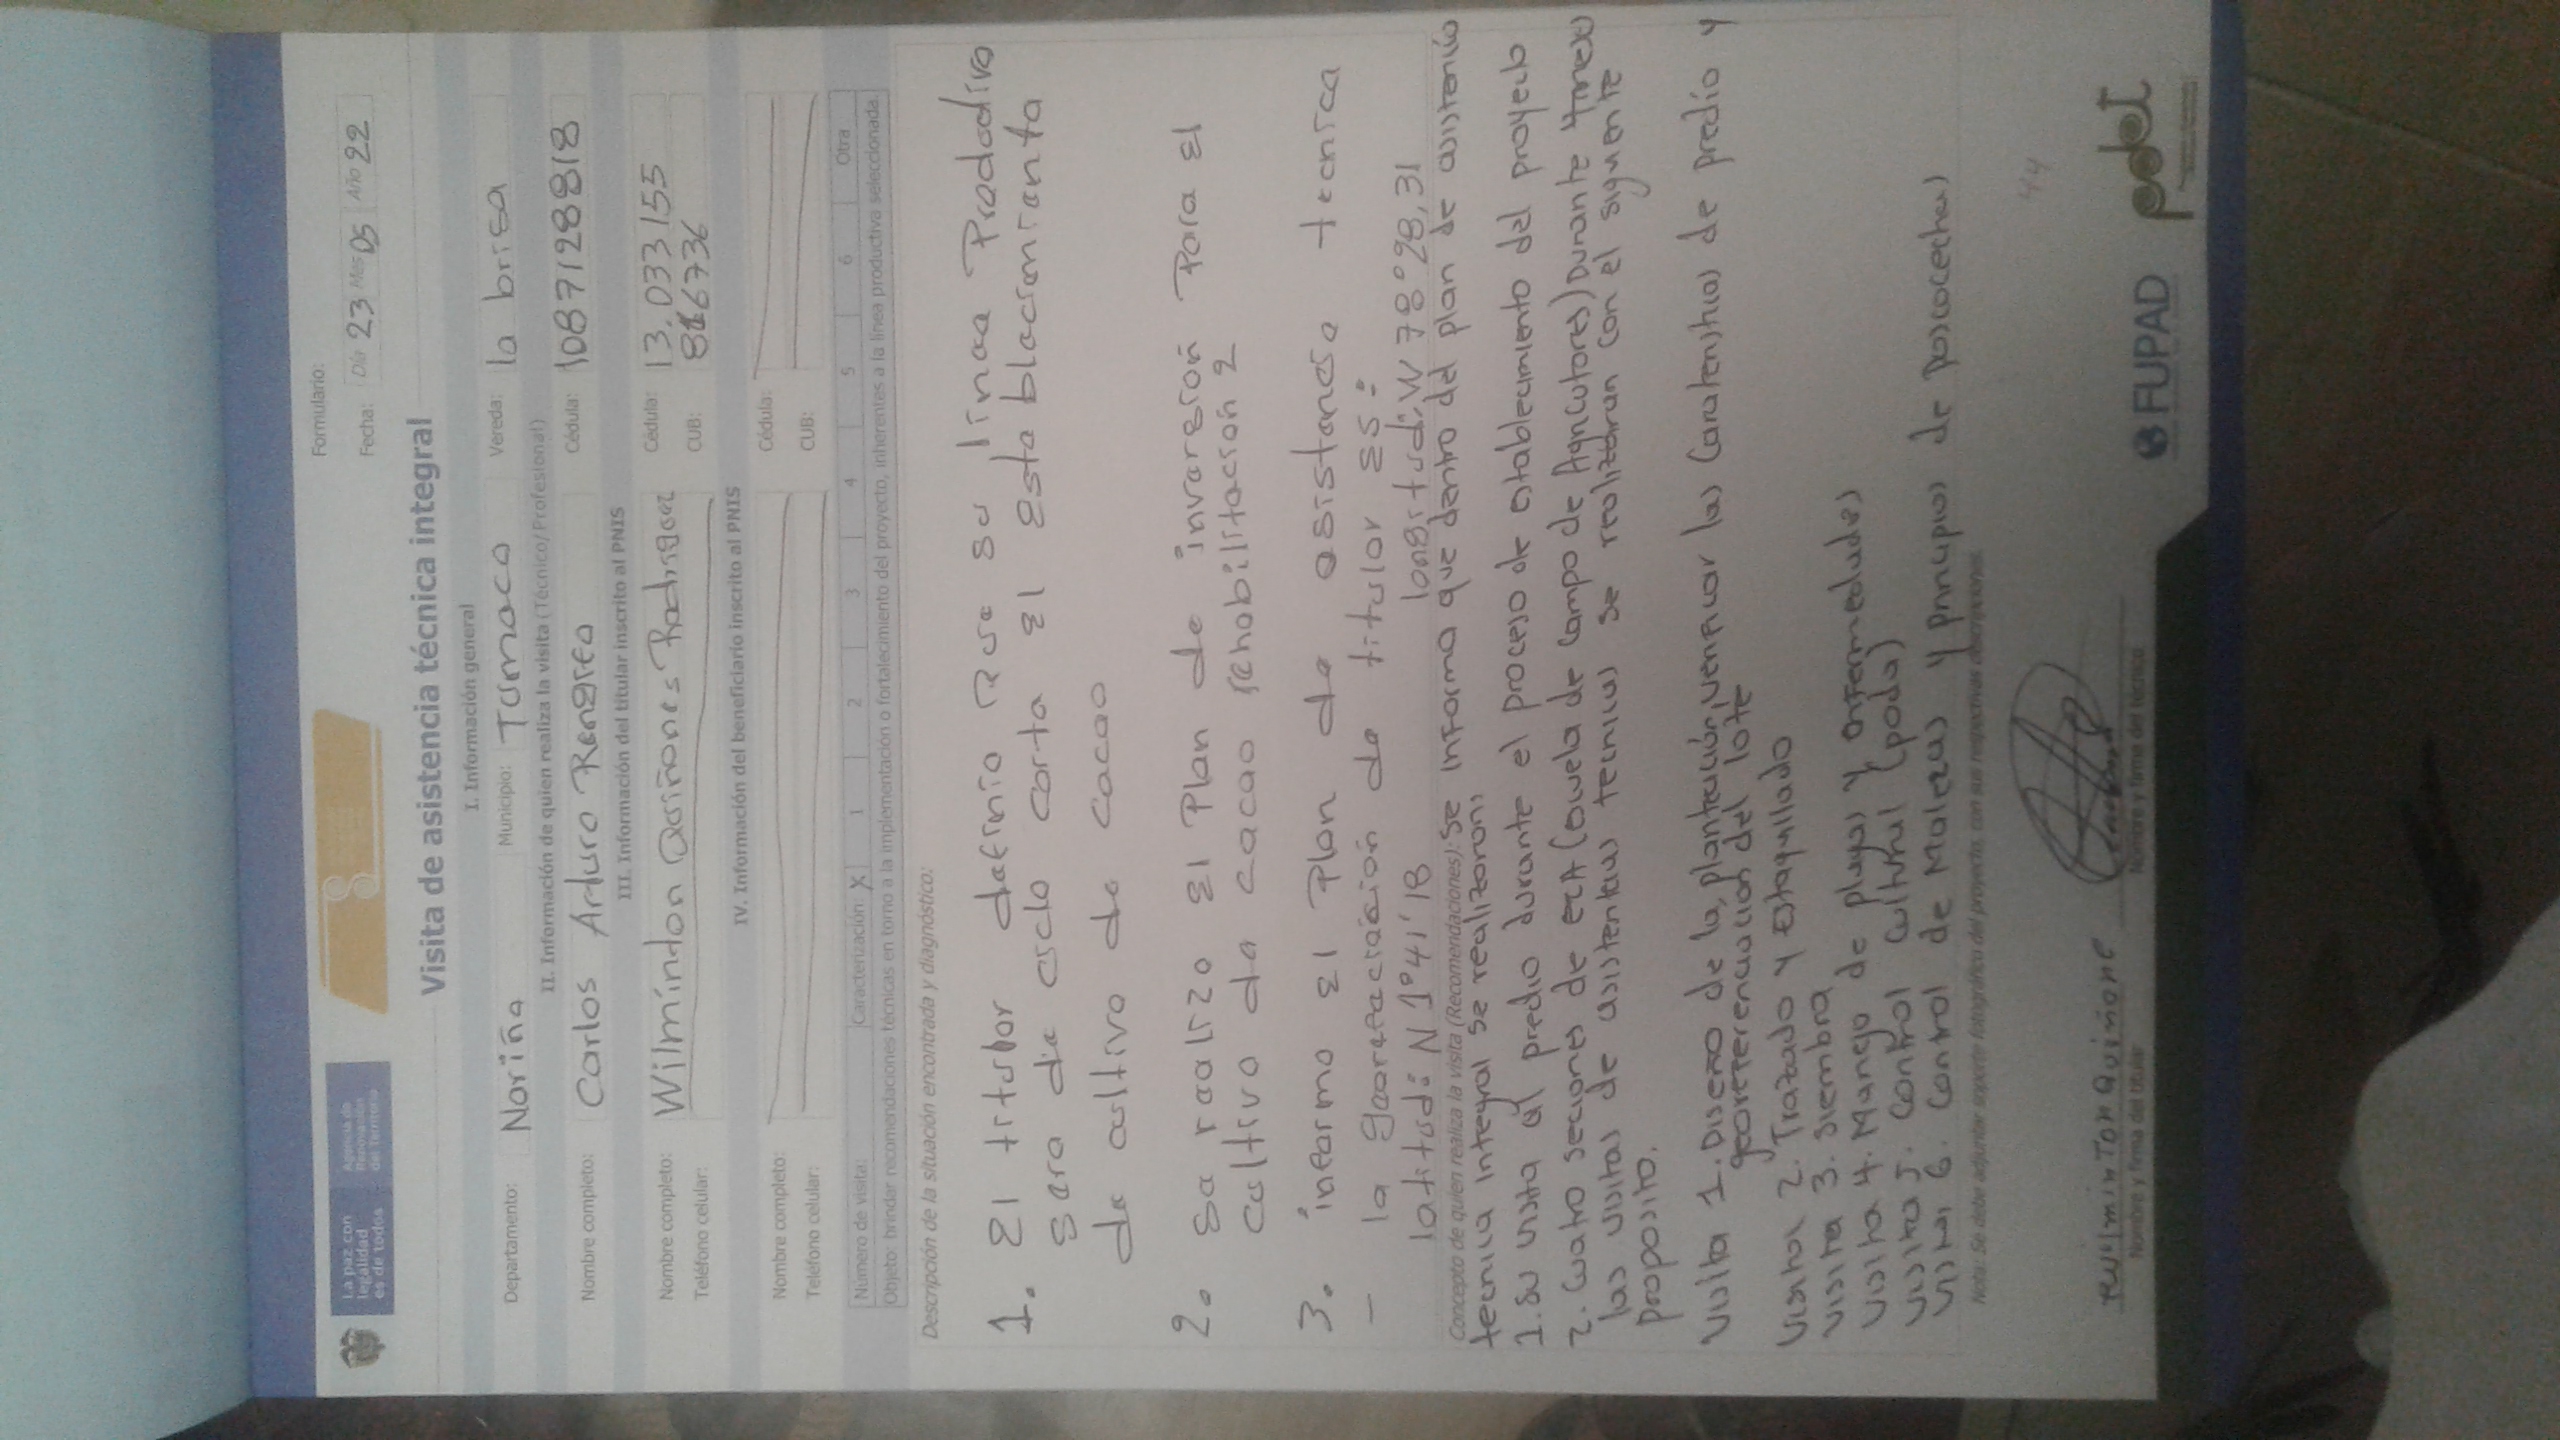 La paz con
legalidad
es de todos
Agencia de
Renovación
del Territorio
Formulario:
Fecha: Día 23 Mes 05 Año 22
Visita de asistencia técnica integral
I. Información general
Departamento: Nariña Municipio: Tumaco Vereda: la brisa
II. Información de quien realiza la visita (Técnico/Profesional)
Nombre completo: Carlos Arturo Rengifo Cédula: 1087128818
III. Información del titular inscrito al PNIS
Nombre completo: Wilmindon Quiñones Rodriguez Cédula: 13.033155
Teléfono celular: CUB: 8166736
IV. Información del beneficiario inscrito al PNIS
Nombre completo: Cédula:
Teléfono celular: CUB:
Número de visita: Caracterización X 1 2 3 4 5 6 Otra
Objeto: brindar recomendaciones técnicas en torno a la implementación o fortalecimiento del proyecto, inherentes a la línea productiva seleccionada.
Descripción de la situación encontrada y diagnóstico:
1. El titular definio que su linea Productiva
Sera de ciclo corto el establecimiento
de cultivo de cacao
2. Se realizo El Plan de invaresion Para El
cultivo de cacao rehabilitacion 2
3. informo El Plan de asistencia tecnica
- la georefacion de titular ES:
latitud: N 1°41'18 longitud: W 78°28,31
Concepto de quien realiza la visita (Recomendaciones): Se informa que dentro del plan de asistencia
tecnica integral se realizaron:
1. Su visita al predio durante el proceso de establecimiento del proyecto
2. Cuatro seciones de ECA (Escuela de Campo de Agricutores) Durante
las visitas de asistencias tecnicas se realizaran con el siguente
proposito.
Visita 1. Diseño de la plantación, verificar las Carateristicas de predio y
georeferenciacion del lote
Visita 2. Trazado y Estaquillado
Visita 3. Siembra
Visita 4. Manejo de plagas y enfermedades
Visita 5. Control Cultural (poda)
Visita 6. Control de Malezas y principios de poscocecha
Nota: Se debe adjuntar soporte fotográfico del proyecto, con sus respectivas descripciones.
44
wilminTon Quiñone
Nombre y firma del titular
Nombre y firma del técnico
FUPAD
pdet